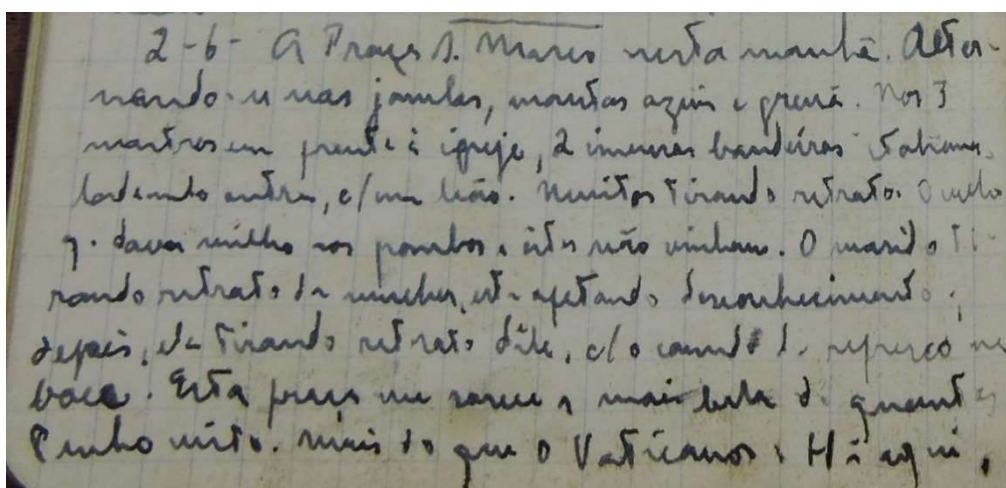 2-6- A Praça S. Marco nesta manhã. Alter-
nando-se nas janelas, mantas azuis e grená. Nos 3
mastros em frente à igreja, 2 imensas bandeiras italianas
ladeando outra, c/ um leão. Muitos tirando retratos. O velho
q. dava milho aos pombos e êstes não vinham. O marido ti-
rando retrato da mulher, esta afetando desconhecimento;
depois, ela tirando retrato dêle, c/ o canudo do refresco na
boca. Esta praça me parece a mais bela de quantas
tenho visto. Mais do que o Vaticano: Há aqui,